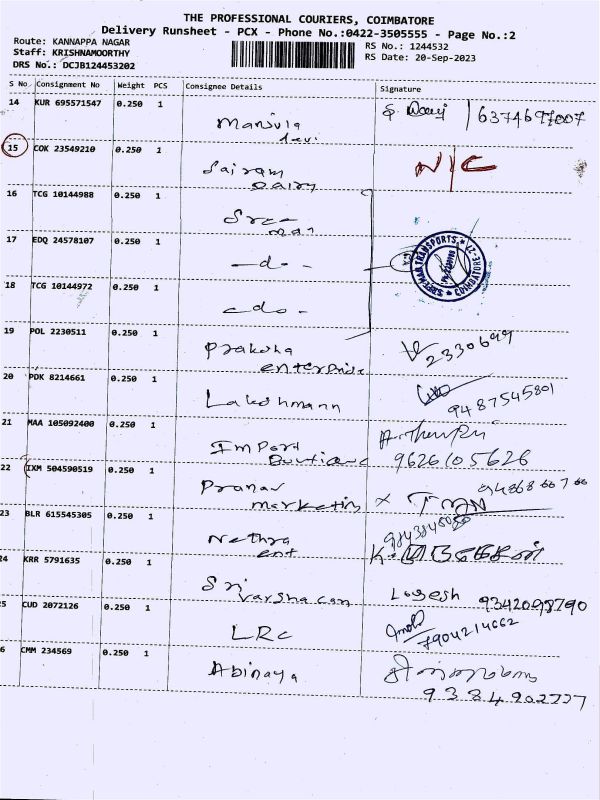 THE PROFESSIONAL COURIERS, COIMBATORE
Delivery Runsheet - PCX - Phone No.:0422-3505555 - Page No.:2
Route: KANNAPPA NAGAR
RS No.: 1244532
Staff: KRISHNAMOORTHY
RS Date: 20-Sep-2023
DRS No.: DCJB124453202
S No Consignment No Weight PCS Consignee Details Signature
14 KUR 695571547 0.250 1 Manjula 6374697007
devi
15 COK 23549210 0.250 1 Sairam N/C
Dairy
16 TCG 10144988 0.250 1 Sree
17 EDQ 24578107 0.250 1 -do-
18 TCG 10144972 0.250 1 -do-
TRANSPORTS
COIMBATORE
19 POL 2230511 0.250 1 Praksha 2330699
enterprise
20 PDK 8214661 0.250 1 Lakshmann 9487545801
21 MAA 105092400 0.250 1 Import
Boutique 9626105626
22 IXM 504590519 0.250 1 Pranav
marketing
23 BLR 615545305 0.250 1 Nethra
ent
24 KRR 5791635 0.250 1 Sri
varsha can Logesh 9342098790
25 CUD 2072126 0.250 1 LRC 7904214662
26 CMM 234569 0.250 1 Abinaya
9384902777